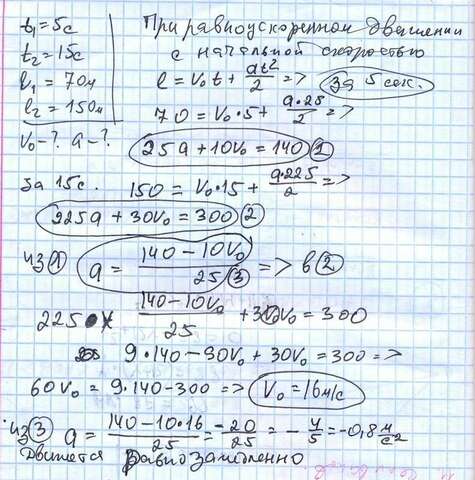 t₁=5с
t₂=15с
l₁=70м
l₂=150м
v₀-? a-?
При равноускоренном движении
с начальной скоростью
l=v₀t+at²/2=> за 5 сек.
70=v₀·5+a·25/2=>
25a+10v₀=140 (1)
за 15с. 150=v₀·15+a·225/2=>
225a+30v₀=300 (2)
из (1) a=(140-10v₀)/25 (3) => в (2)
225 × (140-10v₀)/25 +30v₀=300
9·140-90v₀+30v₀=300=>
60v₀=9·140-300=> v₀=16м/с
из (3) a=(140-10·16)/25=-20/25=-4/5=-0,8м/с²
Движется равнозамедленно